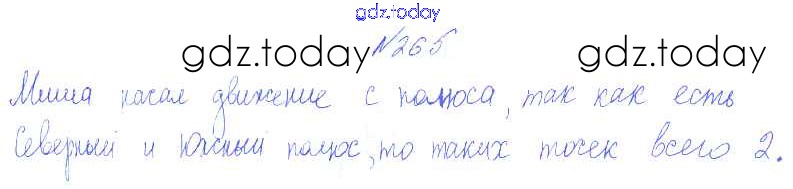 gdz.today
gdz.today №265 gdz.today
Миша начал движение с полюса, так как есть
Северный и Южный полюс, то таких точек всего 2.